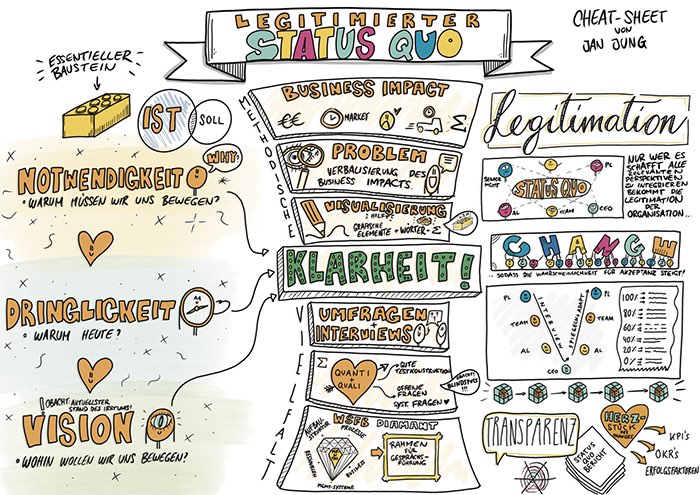 LEGITIMIERTER
STATUS QUO
CHEAT-SHEET
VON
JAN JUNG
ESSENTIELLER
BAUSTEIN
IST
SOLL
WHY?
NOTWENDIGKEIT
• WARUM MÜSSEN WIR UNS BEWEGEN?
DRINGLICKEIT
• WARUM HEUTE?
! OBACHT: AKTUELLSTER
STAND DES IRRTUMS!
VISION
• WOHIN WOLLEN WIR UNS BEWEGEN?
METHODISCHE
VIELFALT
BUSINESS IMPACT
€€
MARKET
Σ
PROBLEM
VERBALISIERUNG DES
BUSINESS IMPACTS
VISUALISIERUNG
GRAFISCHE
ELEMENTE + WÖRTER =
Σ
KLARHEIT!
UMFRAGEN
+
INTERVIEWS
Σ
QUANTI
+
QUALI
GUTE
TESTKONSTRUKTION
OFFENE
FRAGEN
SYST. FRAGEN
OBACHT!
BLINDSPOT!!!
WSFB
DIAMANT
AUFBAU
STRUKTUR
PROZESSE
RESSOURCEN
BUSINESS
MGMT-SYSTEME
RAHMEN
FÜR
GESPRÄCHS-
FÜHRUNG
Legitimation
SENIOR
MGMT
PL
STATUS QUO
AL
TEAM
CEO
NUR WER ES
SCHAFFT ALLE
RELEVANTEN
PERSPEKTIVEN
ZU INTEGRIEREN
BEKOMMT DIE
LEGITIMATION
DER
ORGANISATION..
CHANGE
... SODASS DIE WAHRSCHEINLICHKEIT FÜR AKZEPTANZ STEIGT!
PL
TEAM
AL
CEO
INTERVIEW
PL
TEAM
AL
100%
80%
60%
40%
20%
0%
TRANSPARENZ
STATUS
QUO
BERICHT
HERZ-
STÜCK
DES
CHANGES
KPI'S
OKR'S
ERFOLGSFAKTOREN